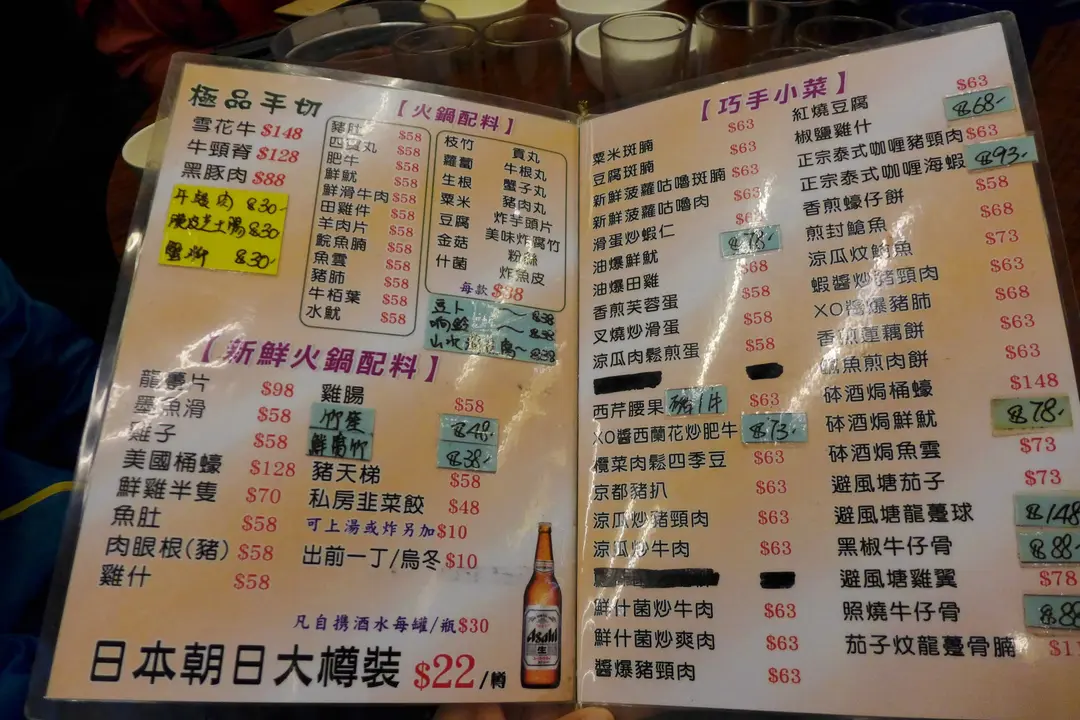 極品手切
雪花牛 $148
牛頸脊 $128
黑豚肉 $88
$30
$30
$30
【火鍋配料】
豬肚 $58
四寶丸 $58
肥牛 $58
鮮魷 $58
鮮滑牛肉 $58
田雞件 $58
羊肉片 $58
鯇魚腩 $58
魚雲 $58
豬肺 $58
牛栢葉 $58
水魷 $58
枝竹 貢丸
蘿蔔 牛根丸
生根 蟹子丸
粟米 豬肉丸
豆腐 炸芋頭片
金菇 美味炸腐竹
什菌 粉絲
炸魚皮
每款 $38
豆卜 ~ $38
响鈴 ~ $38
山水 ~ $38
【新鮮火鍋配料】
龍躉片 $98
墨魚滑 $58
雞子 $58
美國桶蠔 $128
鮮雞半隻 $70
魚肚 $58
肉眼根(豬) $58
雞什 $58
雞腸 $58
竹笙 $48
鮮腐竹 $38
豬天梯 $58
私房韭菜餃 $48
可上湯或炸另加$10
出前一丁/烏冬 $10
凡自携酒水每罐/瓶$30
日本朝日大樽裝 $22/樽
Asahi
【巧手小菜】
粟米斑腩 $63
豆腐斑腩 $63
新鮮菠蘿咕嚕斑腩 $63
新鮮菠蘿咕嚕肉
滑蛋炒蝦仁 $78
油爆鮮魷 $68
油爆田雞
香煎芙蓉蛋 $58
叉燒炒滑蛋 $58
涼瓜肉鬆煎蛋
西芹腰果 $63
XO醬西蘭花炒肥牛 $73
欖菜肉鬆四季豆 $63
京都豬扒 $63
涼瓜炒豬頸肉 $63
涼瓜炒牛肉 $63
鮮什菌炒牛肉 $63
鮮什菌炒爽肉 $63
醬爆豬頸肉 $63
紅燒豆腐 $63
椒鹽雞什 $68
正宗泰式咖喱豬頸肉 $63
正宗泰式咖喱海蝦 $93
香煎蠔仔餅 $58
煎封鯧魚 $68
涼瓜炆鯧魚 $73
蝦醬炒豬頸肉 $63
XO醬爆豬肺 $68
香煎蓮藕餅 $63
鯪魚煎肉餅 $63
砵酒焗桶蠔 $148
砵酒焗鮮魷 $78
砵酒焗魚雲 $73
避風塘茄子 $73
避風塘龍躉球 $148
黑椒牛仔骨 $88
避風塘雞翼 $78
照燒牛仔骨 $88
茄子炆龍躉骨腩